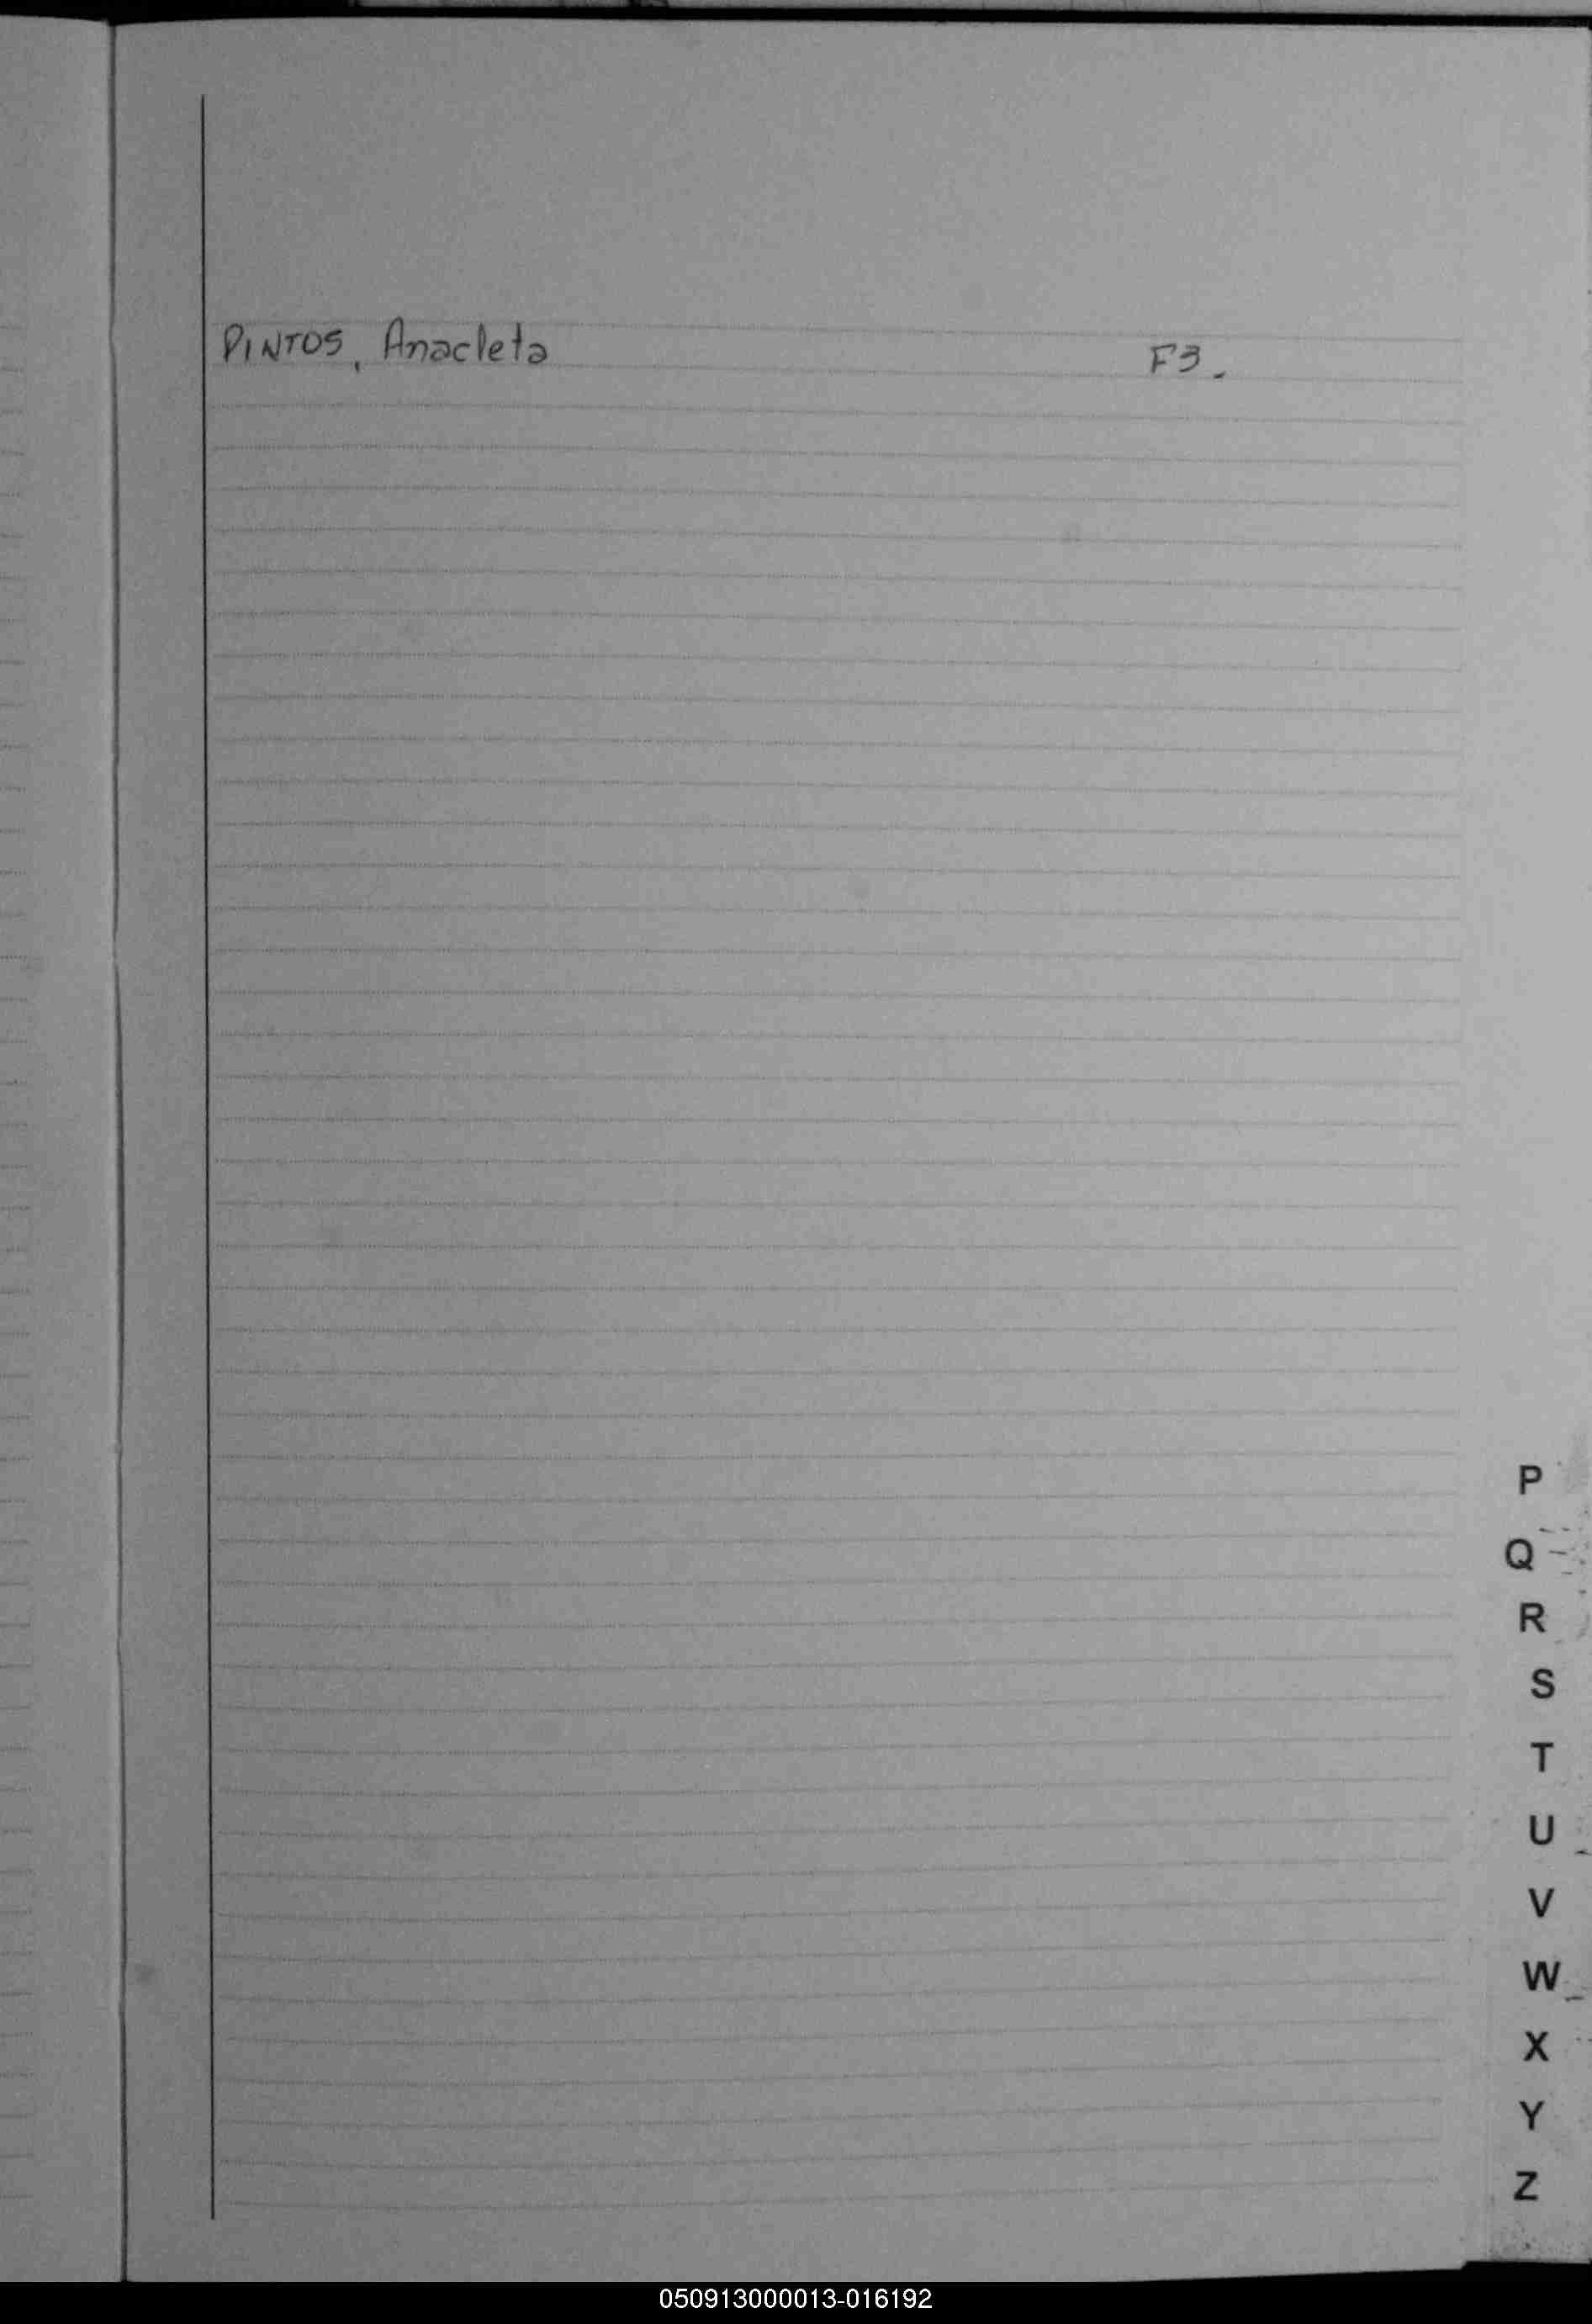 PINTOS, Anacleta F3.
P
Q
R
S
T
U
V
W
X
Y
Z
050913000013-016192